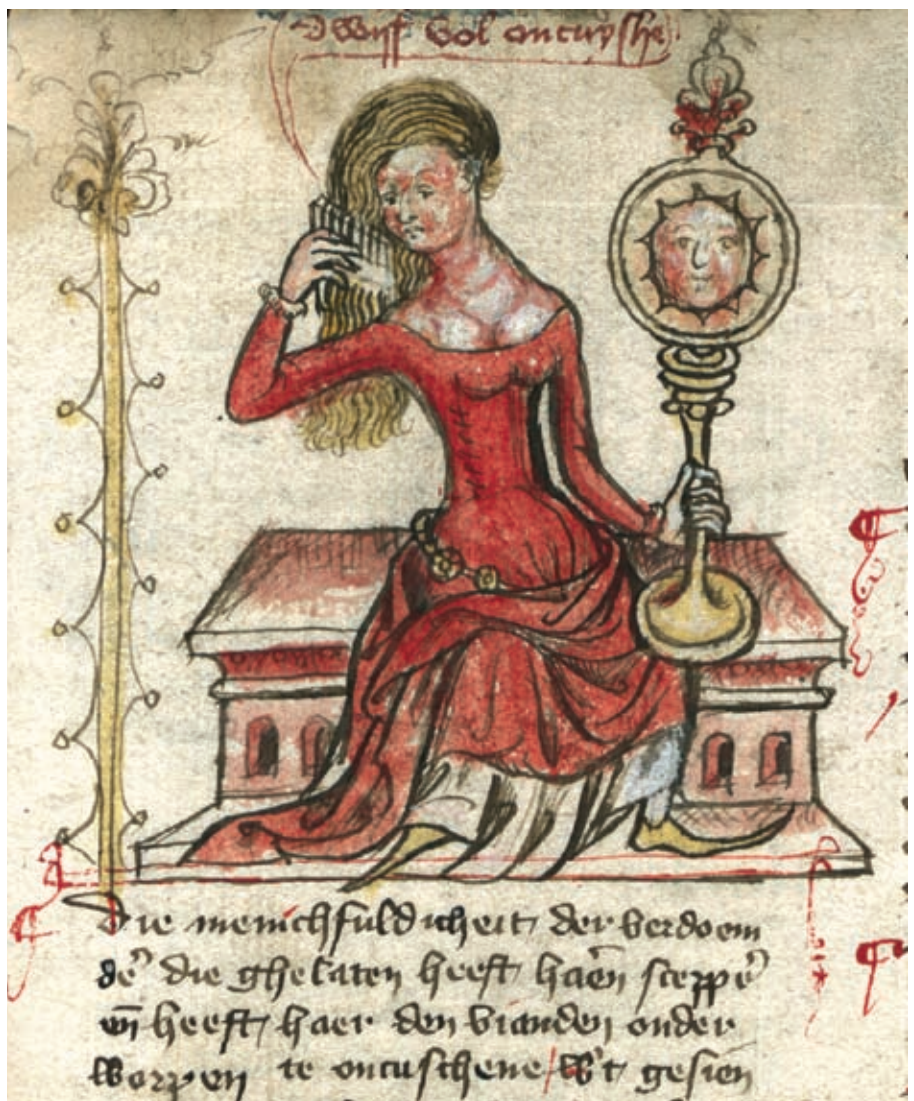 d wijf vol oncuyshe
Die menichfuldicheit der verdoem
deñ die ghelaten heeft haeñ sceppeʼ
eñ heeft haer den vianden onder
worpen te oncuschene / wʼt gesien